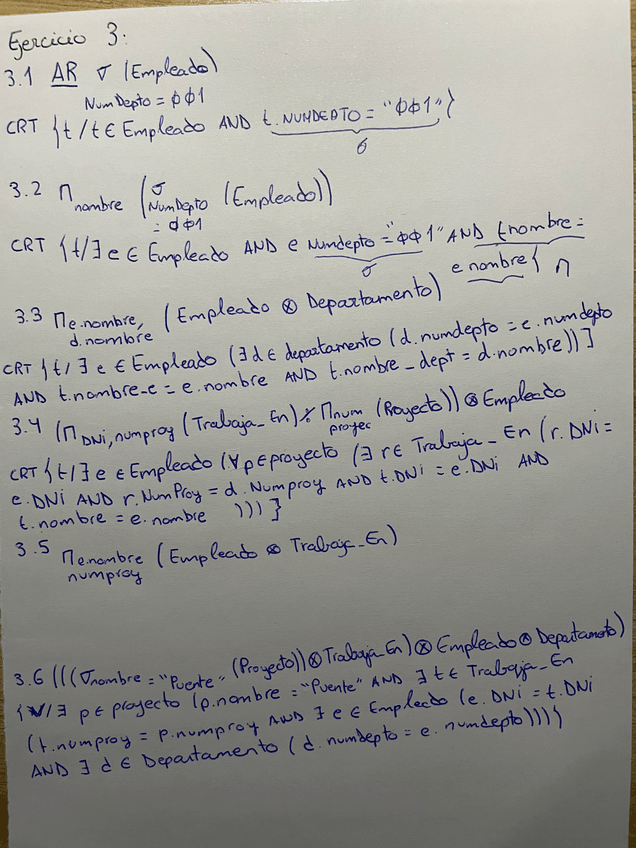 Ejercicio 3:
3.1 AR σ (Empleado)
NumDepto = φφ1
CRT {t / t ∈ Empleado AND t.NUMDEPTO = "φφ1"}
σ
3.2 Π nombre (σ NumDepto = φφ1 (Empleado))
CRT {t/∃ e ∈ Empleado AND e Numdepto = "φφ1" AND t nombre =
σ
e nombre} Π
3.3 Π e.nombre, d.nombre (Empleado ⊗ Departamento)
CRT {t/ ∃ e ∈ Empleado (∃ d ∈ departamento (d.numdepto = e.numdepto
AND t.nombre-e = e.nombre AND t.nombre_dept = d.nombre))]
3.4 (Π DNi, numproy (Trabaja_En) ÷ Π num proyec (Proyecto)) ⊗ Empleado
CRT {t/∃ e ∈ Empleado (∀ p ∈ proyecto (∃ r ∈ Trabaja_En (r.DNi =
e.DNi AND r.NumProy = d.Numproy AND t.DNi = e.DNi AND
t.nombre = e.nombre )))}
3.5 Π e.nombre numproy (Empleado ⊗ Trabaja_En)
3.6 (((σ nombre = "Puente" (Proyecto)) ⊗ Trabaja_En) ⊗ Empleado ⊗ Departamento)
{ /∃ p ∈ proyecto (p.nombre = "Puente" AND ∃ t ∈ Trabaja_En
(t.numproy = p.numproy AND ∃ e ∈ Empleado (e.DNi = t.DNi
AND ∃ d ∈ Departamento (d.numdepto = e.numdepto))))}